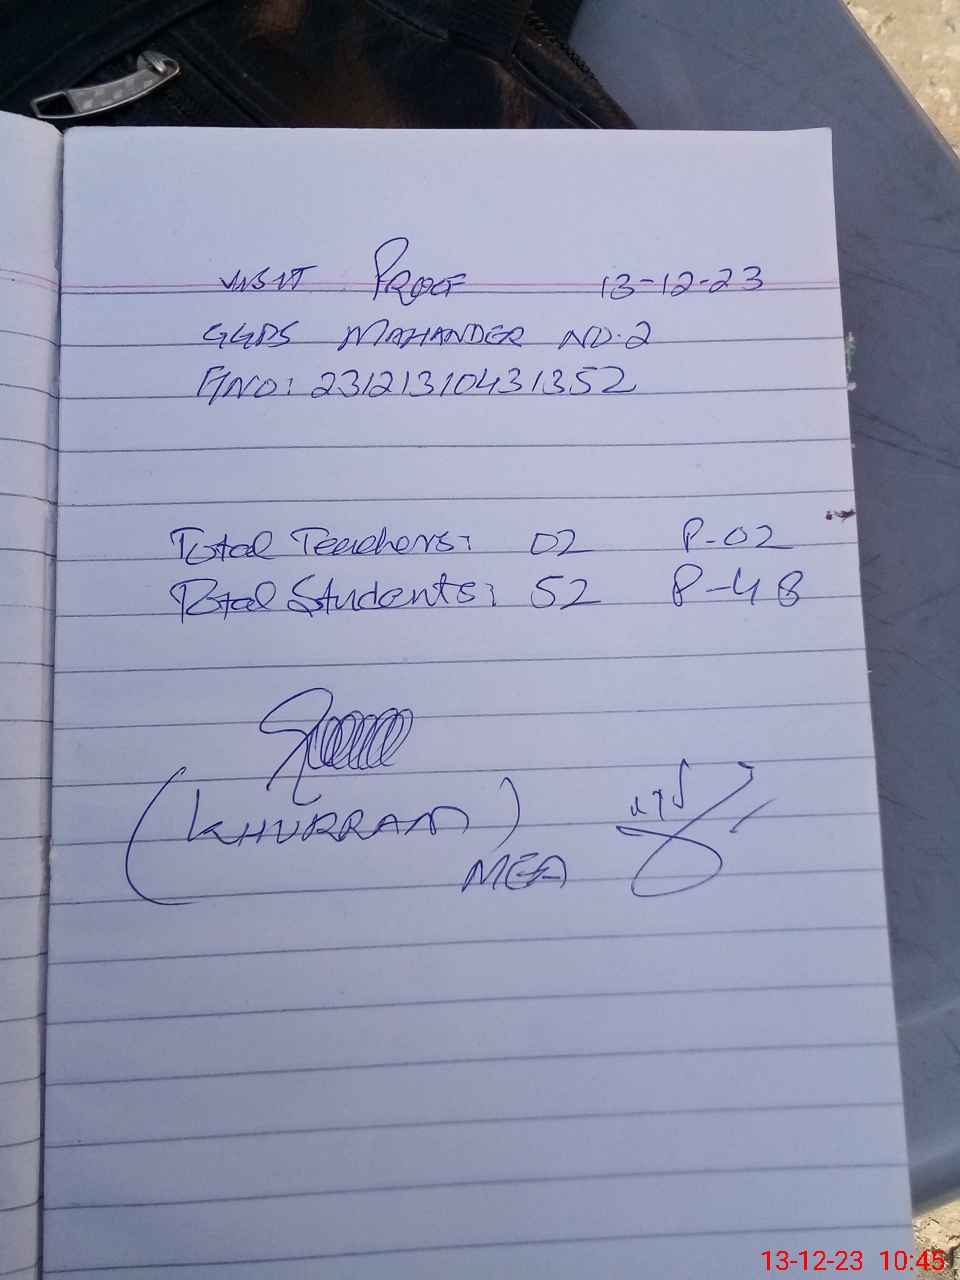 VISIT PROOF 13-12-23
GGPS MAHANDER NO.2
F/NO: 23121310431352
Total Teachers: 02 P-02
Total Students: 52 P-48
(KHURRAM)
MEA
13-12-23 10:45